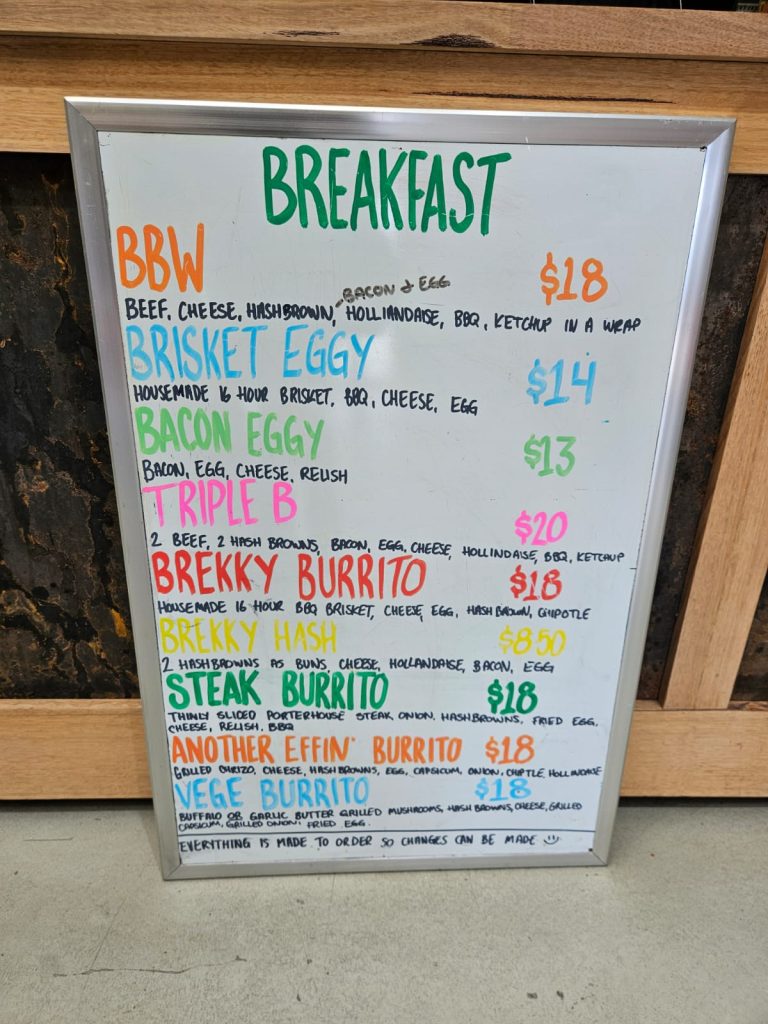 BREAKFAST
BBW $18
-BACON & EGG
BEEF, CHEESE, HASHBROWN, HOLLIANDAISE, BBQ, KETCHUP IN A WRAP
BRISKET EGGY $14
HOUSEMADE 16 HOUR BRISKET, BBQ, CHEESE, EGG
BACON EGGY $13
BACON, EGG, CHEESE, RELISH
TRIPLE B $20
2 BEEF, 2 HASH BROWNS, BACON, EGG, CHEESE, HOLLINDAISE, BBQ, KETCHUP
BREKKY BURRITO $18
HOUSEMADE 16 HOUR BBQ BRISKET, CHEESE, EGG, HASH BROWN, CHIPOTLE
BREKKY HASH $850
2 HASHBROWNS AS BUNS, CHEESE, HOLLANDAISE, BACON, EGG
STEAK BURRITO $18
THINLY SLICED PORTERHOUSE STEAK ONION, HASHBROWNS, FRIED EGG,
CHEESE, RELISH, BBQ
ANOTHER EFFIN' BURRITO $18
GRILLED CHRIZO, CHEESE, HASHBROWNS, EGG, CAPSICUM, ONION, CHIPTLE, HOLLINDAISE
VEGE BURRITO $18
BUFFALO OR GARLIC BUTTER GRILLED MUSHROOMS, HASH BROWNS, CHEESE, GRILLED
CAPSICUM, GRILLED ONION, FRIED EGG.
EVERYTHING IS MADE TO ORDER SO CHANGES CAN BE MADE